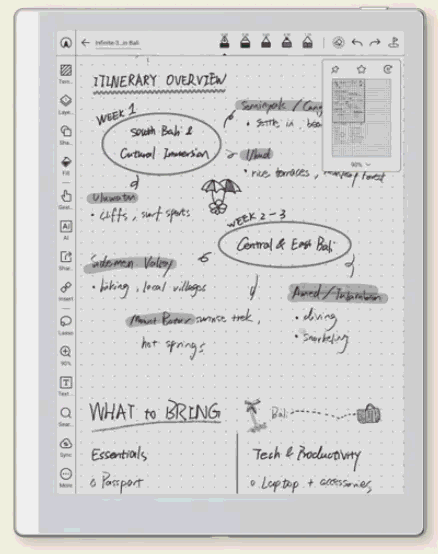 Infinite S...in Bali
ITINERARY OVERVIEW
WEEK 1
South Bali &
Cultural Immersion
Seminyak / Cang
• settle in, bea
Ubud
• rice terraces, monkey forest
Uluwatu
• cliffs, surf spots
WEEK 2-3
Central & East Bali
Sidemen Valley
• hiking, local villages
Mount Batur sunrise trek,
hot springs
Amed /
• diving
• snorkeling
WHAT to BRING
Bali
Essentials
Tech & Productivity
o Passport
o Laptop + accessories,
90%
Tem...
Laye...
Sha...
Fill
Gest...
AI
Shar...
Insert
Lasso
90%
Text...
Sear...
Sync
More